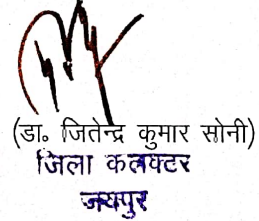 (डा० जितेन्द्र कुमार सोनी)
जिला कलक्टर
जयपुर